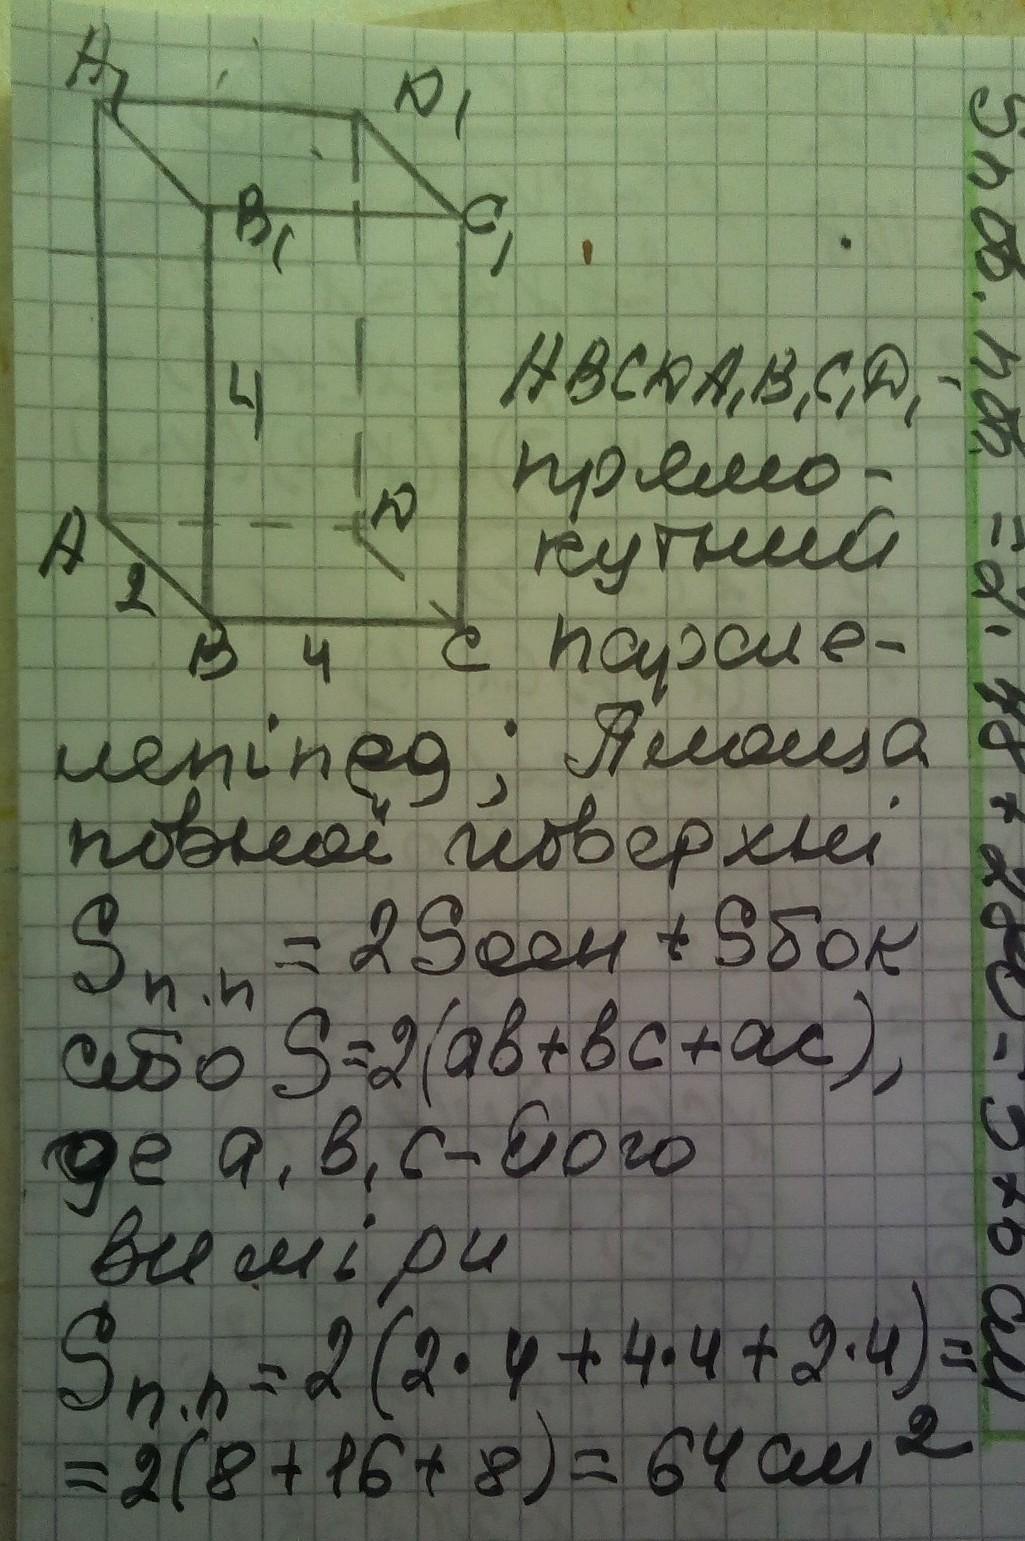 A₁ D₁
B₁ C₁
4
A D
2
B 4 C
ABCDA₁B₁C₁D₁ -
прямо-
кутний
парале-
лепіпед; Площа
повної поверхні
Sп.п = 2Sосн + Sбок
або S=2(ab+bc+ac),
де a, b, c - його
виміри
Sп.п = 2(2·4+4·4+2·4)=
=2(8+16+8)=64см²